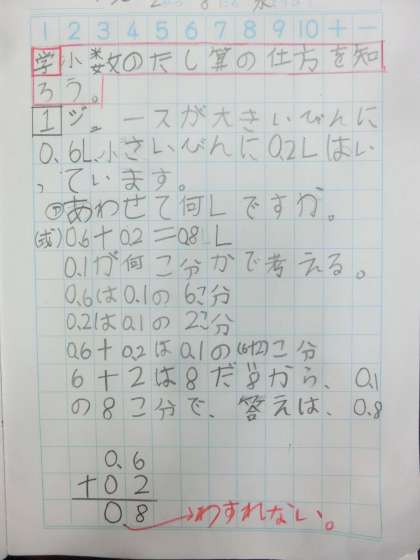 1 2 3 4 5 6 7 8 9 10 + −
学 小数のたし算の仕方を知
ろう。
1 ジュースが大きいびんに
0.6L、小さいびんに0.2Lはい
っています。
㋐あわせて何Lですか。
(式)0.6+0.2=0.8 L
0.1が何こ分かで考える。
0.6は0.1の6こ分
0.2は0.1の2こ分
0.6+0.2は0.1の(6+2)こ分
8
6+2は8だから、0.1
の8こ分で、答えは、0.8
0.6
+0.2
0.8 →わすれない。